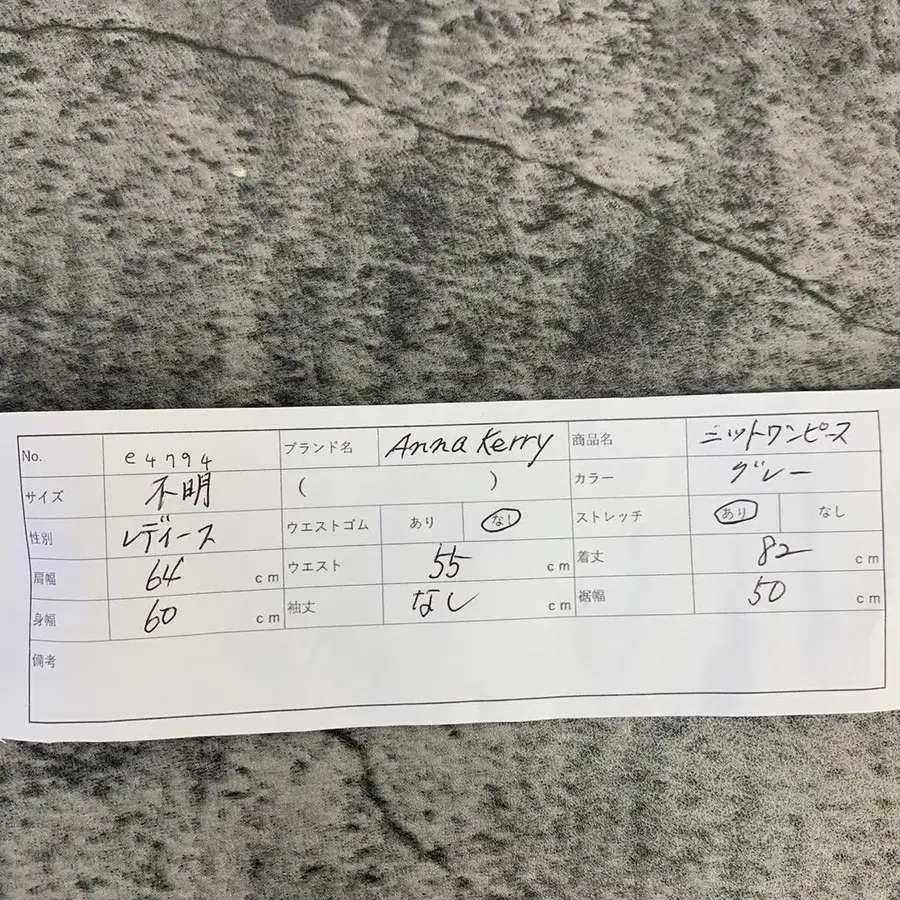 No. e4794 ブランド名 Anna Kerry 商品名 ニットワンピース
サイズ 不明 ( ) カラー グレー
性別 レディース ウエストゴム あり なし ストレッチ あり なし
肩幅 64 cm ウエスト 55 cm 着丈 82 cm
身幅 60 cm 袖丈 なし cm 裾幅 50 cm
備考